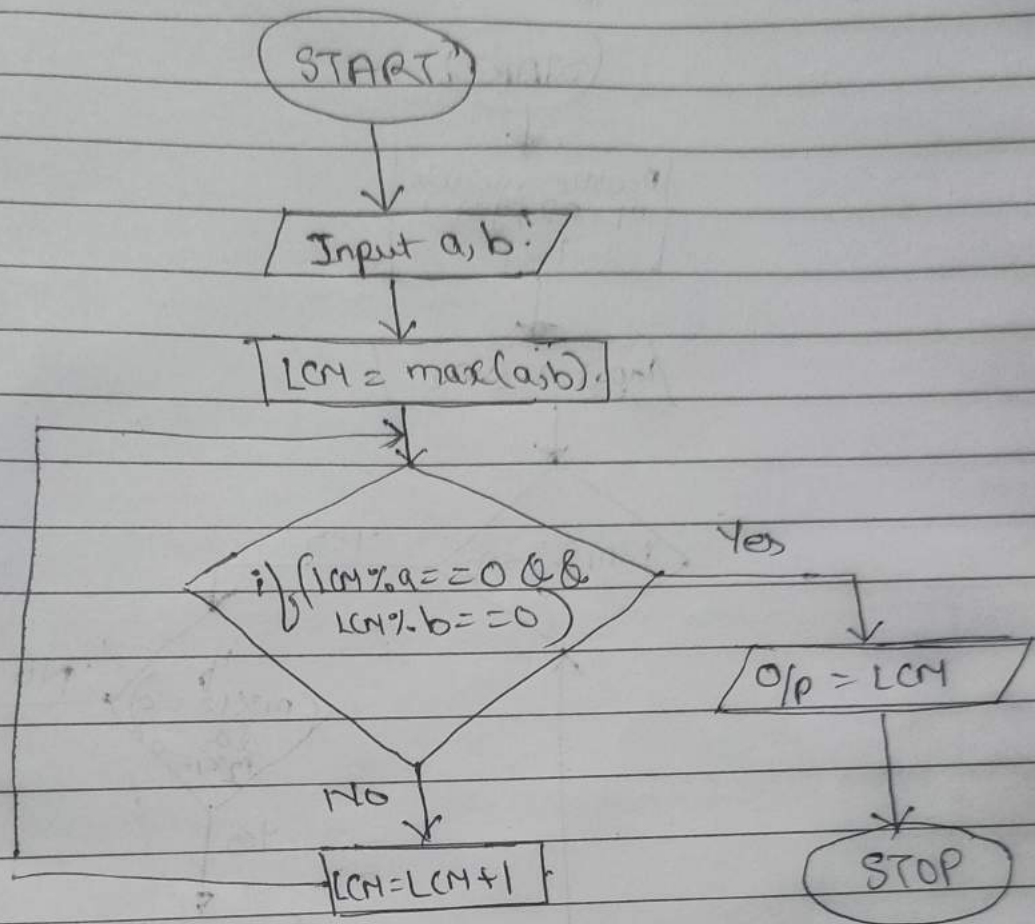 START
Input a, b
LCM = max(a,b).
if (LCM%a==0 &&
LCM%b==0)
Yes
O/p = LCM
No
LCM=LCM+1
STOP